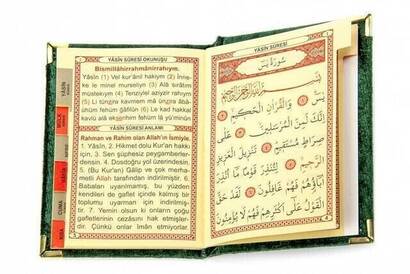 YÂSÎN SÛRESİ OKUNUŞU
Bismillâhirrahmânirrahıym.
Yâsîn (1) Vel kur'ânil hakiym (2) İnne-
ke le minel murseliyn (3) Alâ sırâtım
müstekıym (4) Tenziylel aziyzir rahıym
(5) Li tünzira kavmem mâ ünzira âbâ-
ühüm fehüm ğâfilûn (6) Le kad hakkal
kavlü alâ ekserihim fehüm lâ yü'minûn
YÂSÎN SÛRESİ ANLAMI
Rahman ve Rahim olan Allah'ın İsmiyle.
1. Yâsîn, 2. Hikmet dolu Kur'an hakkı
için, 3. Sen şüphesiz peygamberler-
densin. 4. Dosdoğru yol üzerindesin.
5. (Bu Kur'an) Galip ve çok merha-
metli Allah tarafından indirilmiştir. 6.
Babaları uyarılmamış, bu yüzden
kendileri de gaflet içinde kalmış bir
toplumu uyarman için indirilmiş-
tir. 7. Yemin olsun ki onların çoğu
gafletlerinin cezasını hak etmişler-
dir. Çünkü onlar iman etmiyorlar.
YÂSİN
CUMA
YÂSÎN SÛRESİ
سُورَةُ يٰسٓ
بِسْمِ اللهِ الرَّحْمٰنِ الرَّحِيمِ
يٰسٓ وَالْقُرْاٰنِ الْحَكِيمِ
اِنَّكَ لَمِنَ الْمُرْسَلِينَ عَلٰى
صِرَاطٍ مُسْتَقِيمٍ تَنْزِيلَ الْعَزِيزِ
الرَّحِيمِ لِتُنْذِرَ قَوْمًا مَٓا اُنْذِرَ
اٰبَٓاؤُهُمْ فَهُمْ غَافِلُونَ لَقَدْ حَقَّ
الْقَوْلُ عَلٰٓى اَكْثَرِهِمْ فَهُمْ لَا يُؤْمِنُونَ